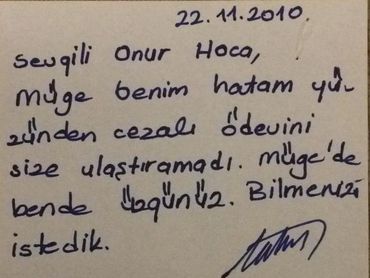 22.11.2010.
Sevgili Onur Hoca,
Müge benim hatam yü-
zünden cezalı ödevini
size ulaştıramadı. Müge'de
bende üzgünüz. Bilmenizi
istedik.